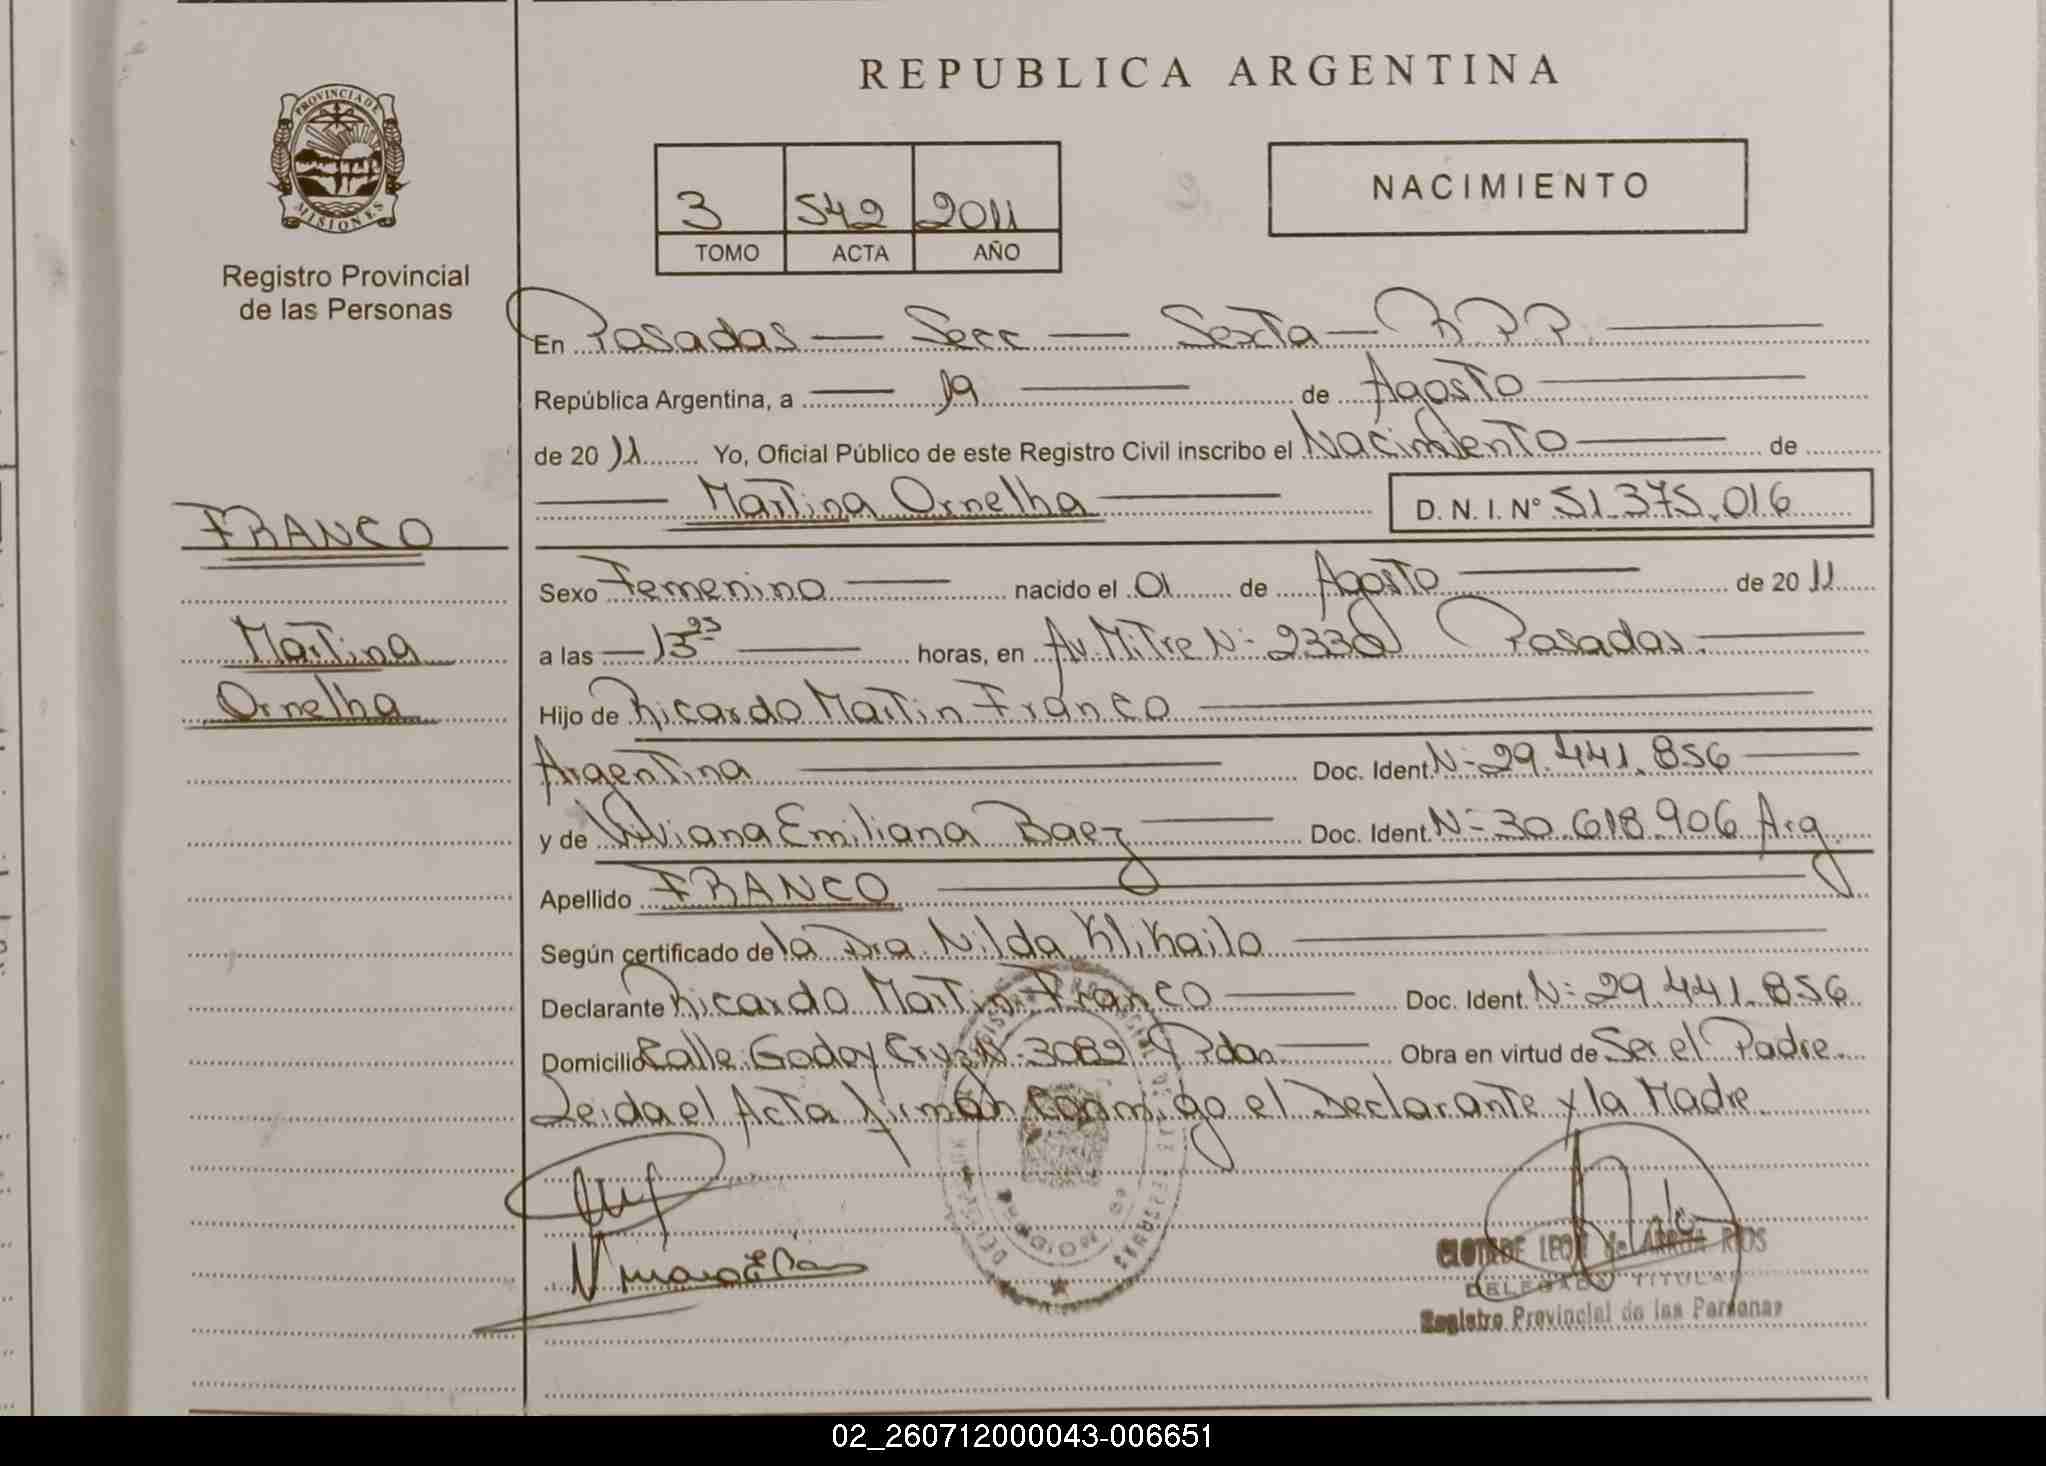 REPUBLICA ARGENTINA
PROVINCIA DE
MISIONES
Registro Provincial
de las Personas
3 542 2011
TOMO ACTA AÑO
NACIMIENTO
En Posadas — Secc — Sexta — R.P.P.
República Argentina, a — 19 — de Agosto
de 2011 Yo, Oficial Público de este Registro Civil inscribo el Nacimiento de
Martina Ornelha D. N. I. Nº 51.375.016
FRANCO
Martina
Ornelha
Sexo Femenino nacido el 01 de Agosto de 2011
a las — 13 23 — horas, en Av. Mitre N- 2330 Posadas.
Hijo de Ricardo Martin Franco
Argentina Doc. Ident. N- 29.441.856
y de Viviana Emiliana Baez Doc. Ident. N- 30.618.906 Arg
Apellido FRANCO
Según certificado de la Dra. Nilda Klikailo
Declarante Ricardo Martin Franco Doc. Ident. N- 29.441.856
Domicilio Calle Godoy Cruz N- 3082 Pdas Obra en virtud de Ser el Padre
Leida el Acta firman conmigo el Declarante y la Madre
CLOTILDE LEON de ARRUA RIOS
DELEGADO TITULAR
Registro Provincial de las Personas
02_260712000043-006651